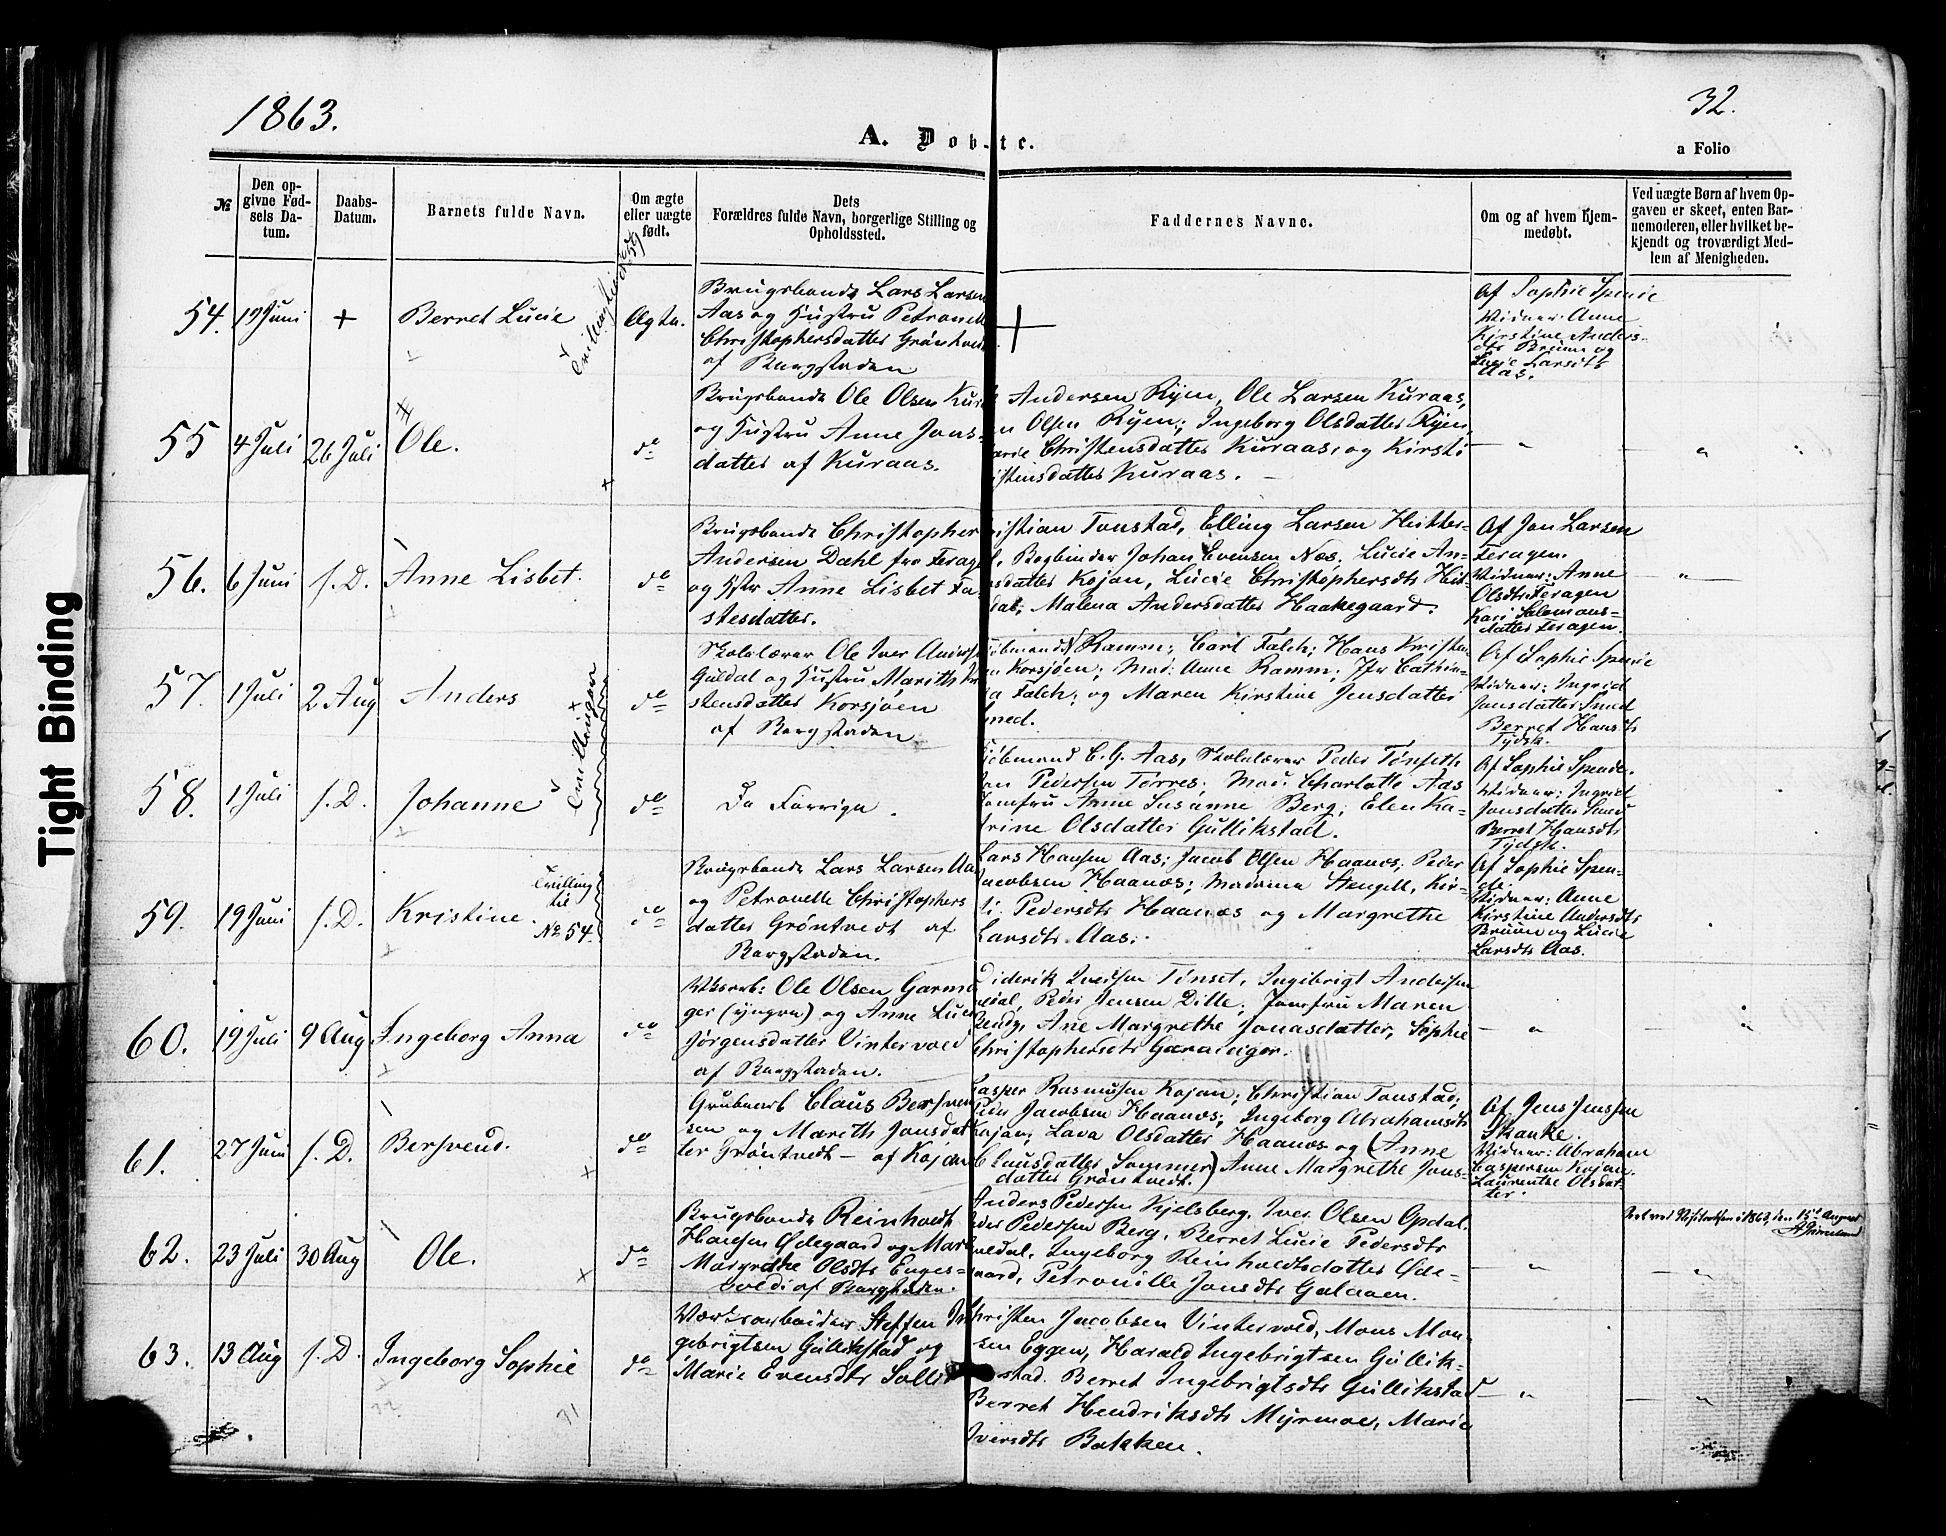 1863.
32.
A. Døbte.
a Folio
№
Den op-
givne Fød-
sels Da-
tum.
Daabs-
Datum.
Barnets fulde Navn.
Om ægte
eller uægte
født.
Dets
Forældres fulde Navn, borgerlige Stilling og
Opholdssted.
Faddernes Navne.
Om og af hvem hjem-
medøbt.
Ved uægte Børn af hvem Op-
gaven er skeet, enten Bar-
nemoderen, eller hvilket be-
kjendt og troværdigt Med-
lem af Menigheden.
54. 19 Juni + Berret Lucie Ægte.
Brugsbonde Lars Larsen
Aas og Hustru Petronelle
Christophersdatter Grøntvedt
af Bergstaden
Af Sophie Spende
Vidner: Anne
Kirstine Anders-
dtr Bruun og
Lucie Larsdtr
Aas.
55 4 Juli 26 Juli Ole. do
Brugsbonde Ole Olsen Kur
og Hustru Anne Jons-
datter af Kuraas.
Andersen Ryen, Ole Larsen Kuraas,
n Olsen Ryen; Ingeborg Olsdatter Ryen,
Christensdatter Kuraas, og Kirsti
istensdatter Kuraas.
56. 6 Juni s. D. Anne Lisbet. do
Brugsbonde Christopher
Andersen Dahl fra Ferag
og Hstr Anne Lisbet Fa-
stesdatter.
ristian Tonstad, Elling Larsen Hitter-
Bogbinder Johan Evensen Næs, Lucie An-
sdatter Kojan, Lucie Christophersdtr Hit-
dal, Malena Andersdatter Haakegaard.
Af Jon Larsen
Feragen.
Vidner: Anne
Olsdtr Feragen
Kari Salomons-
datter Feragen.
57. 1 Juli 2 Aug Anders do
Skolelærer Ole Iver Anders
Guldal og Hustru Marith Kr
stensdatter Korsjøen
af Bergstaden
Tvillinger
Kjøbmand N Ramm; Carl Falch; Hans Kristen
n Korsjøen; Mad: Anne Ramm; Jfr Cathin-
a Falch; og Maren Kirstine Jensdatter
Smed.
Af Sophie Spende
Vidner: Ingrid
Jonsdatter Smed
Berret Hansdtr
Tydsk.
58. 1 Juli s. D. Johanne do
De Forrige.
Kjøbmand C. G. Aas, Skolelærer Peder Tønseth,
Jon Pedersen Torres; Mad: Charlotte Aas
Jomfru Anne Susanne Berg; Elen Ka-
trine Olsdatter Gullikstad.
Af Sophie Spende.
Vidner: Ingrid
Jonsdatter Smed
Berret Hansdtr
Tydsk.
59. 19 Juni s. D. Kristine. do
Tvilling
til
No 54.
Brugsbonde Lars Larsen Aas
og Petronelle Christophers
datter Grøntvedt af
Bergstaden.
Lars Hansen Aas; Jacob Olsen Haanæs; Peder
Jacobsen Haanæs; Madame Stengell, Kir-
sti Pedersdtr Haanæs og Margrethe
Larsdtr Aas.
Af Sophie Spen-
de.
Vidner: Anne
Kirstine Andersdtr
Bruun og Lucie
Larsdtr Aas.
60. 19 Juli 9 Aug Ingeborg Anna do
Vksarb: Ole Olsen Garma
ger (yngre) og Anne Lucie
Jørgensdatter Vintervold
af Bergstaden.
Diderik Tønset, Ingebrigt Andersen
Peder Jensen Dille, Jomfru Maren
Bendz, Ane Margrethe Jonasdatter, Sophie
Christophersdtr
61. 27 Juni s. D. Bersvend. do
Grubearb Claus Bersven
sen og Marith Jonsdat
ter Grøntvedt - af Kojan
Casper Rasmusen Kojan; Christian Tonstad;
Peder Jacobsen Haanæs; Ingeborg Abrahamsdt
Kojan; Lava Olsdatter Haanæs og (Anne
Clausdatter Sommer) Anne Margrethe Jons-
datter Grøntvedt.
Af Jens Jensen
Skanke.
Vidner: Abraham
Caspersen Kojan.
Laurentse Olsdat-
ter.
62. 23 Juli 30 Aug Ole. do
Brugsbonde Reinholdt
Hansen Ødegaard og Mar
Margrethe Olsdtr Enges-
vold af Bergstaden.
Anders Pedersen Kjelsberg, Iver Olsen Opdal
Peder Pedersen Berg, Berret Lucie Pedersdtr
Guldal, Ingeborg Reinholdtsdatter Øde-
gaard, Petronille Jonsdtr Galaaen.
Seet ved Visitatsen i 1863, den 15de August
63. 13 Aug s. D. Ingeborg Sophie do
Værksarbeider Steffen In
gebrigtsen Gullikstad og
Marie Evensdtr Sollie
Christen Jacobsen Vintervold, Mons Mon-
sen Eggen, Harald Ingebrigtsen Gullik-
stad. Berret Ingebrigtsdtr Gullikstad
Berret Hendriksdtr Myrmoe, Marie
Iversdtr Bakken.
Tight Binding